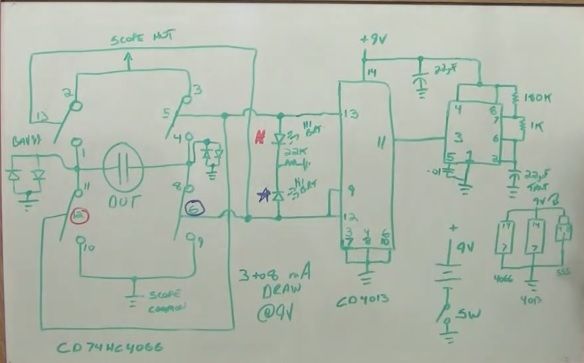 SCOPE HOT
+9V
14
22µF
2
3
13
5
1
4
BAV99
DUT
11
8
12
6
10
9
SCOPE COMMON
CD74HC4066
3 to 8 mA
DRAW
@9V
22K
13
11
9
12
3
7
4
8
6
10
CD4013
4
8
7
3
6
5
1
2
.01
180K
1K
22µF
TANT
+
9V
SW
9V
14
7
14
7
4066
4013
555